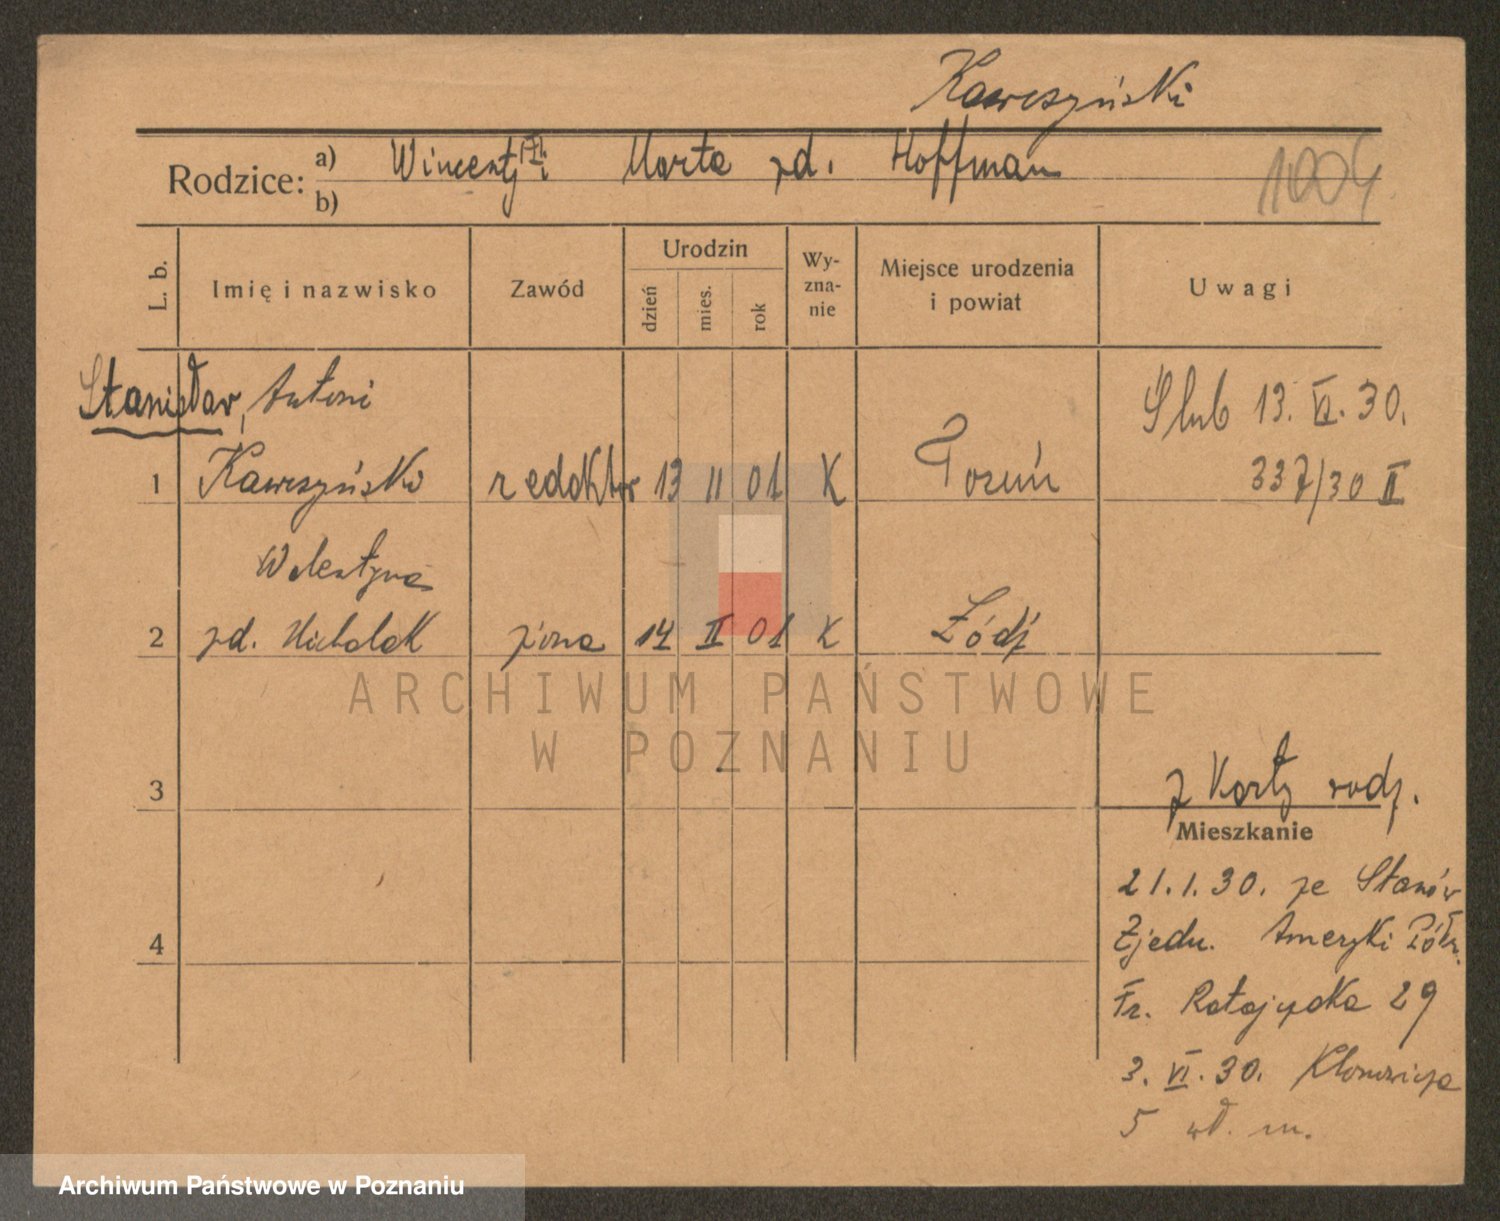 Kawczyński
Rodzice: a) Wincenty i Marta zd. Hoffman
b)
1004
L. b.
Imię i nazwisko
Zawód
Urodzin
dzień
mies.
rok
Wy-
zna-
nie
Miejsce urodzenia
i powiat
Uwagi
Stanisław, Antoni
Ślub 13. VI. 30.
1 Kawczyński redaktor 13 II 01 K Toruń 337/30 II
Walentyna
2 zd. Michalak żona 14 II 01 K Łódź
ARCHIWUM PAŃSTWOWE
W POZNANIU
3
z Karty rodz.
Mieszkanie
21.1.30. ze Stanów
4
Zjedn. Ameryki Półn.
Fr. Ratajczaka 29
3. VI. 30. Klonowicza
5 wł. m.
Archiwum Państwowe w Poznaniu